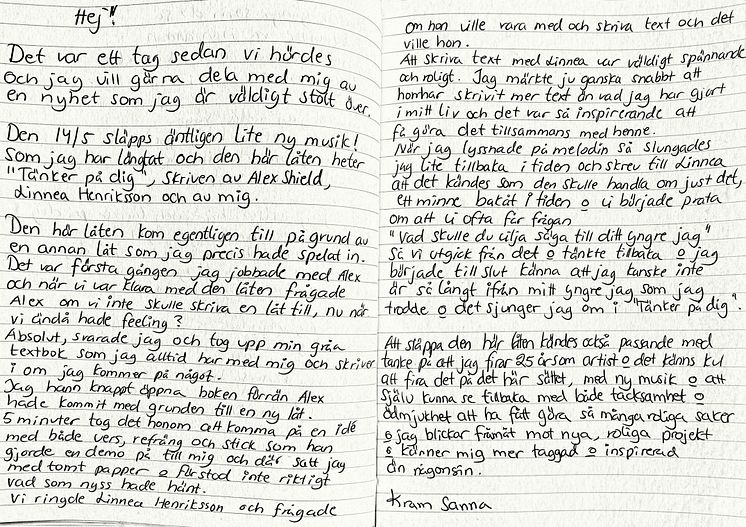 Hej!!
Det var ett tag sedan vi hördes
och jag vill gärna dela med mig av
en nyhet som jag är väldigt stolt över.
Den 14/5 släpps äntligen lite ny musik!
Som jag har längtat och den här låten heter
"Tänker på dig", skriven av Alex Shield,
Linnea Henriksson och av mig.
Den här låten kom egentligen till på grund av
en annan låt som jag precis hade spelat in.
Det var första gången jag jobbade med Alex
och när vi var klara med den låten frågade
Alex om vi inte skulle skriva en låt till, nu när
vi ändå hade feeling?
Absolut, svarade jag och tog upp min gråa
textbok som jag alltid har med mig och skriver
i om jag kommer på något.
Jag hann knappt öppna boken förrän Alex
hade kommit med grunden till en ny låt.
5 minuter tog det honom att komma på en idé
med både vers, refräng och stick som han
gjorde en demo på till mig och där satt jag
med tomt papper o förstod inte riktigt
vad som nyss hade hänt.
Vi ringde Linnea Henriksson och frågade
om hon ville vara med och skriva text och det
ville hon.
Att skriva text med Linnea var väldigt spännande
och roligt. Jag märkte ju ganska snabbt att
hon har skrivit mer text än vad jag har gjort
i mitt liv och det var så inspirerande att
få göra det tillsammans med henne.
När jag lyssnade på melodin så slungades
jag lite tillbaka i tiden och skrev till Linnea
att det kändes som den skulle handla om just det,
ett minne bakåt i tiden o vi började prata
om att vi ofta får frågan
"Vad skulle du vilja säga till ditt yngre jag"
Så vi utgick från det o tänkte tillbaka o jag
började till slut känna att jag kanske inte
är så långt ifrån mitt yngre jag som jag
trodde o det sjunger jag om i "Tänker på dig".
Att släppa den här låten kändes också passande med
tanke på att jag firar 25 år som artist o det känns kul
att fira det på det här sättet, med ny musik o att
själv kunna se tillbaka med både tacksamhet o
ödmjukhet att ha fått göra så många roliga saker
o jag blickar framåt mot nya, roliga projekt
o känner mig mer taggad o inspirerad
än någonsin.
Kram Sanna